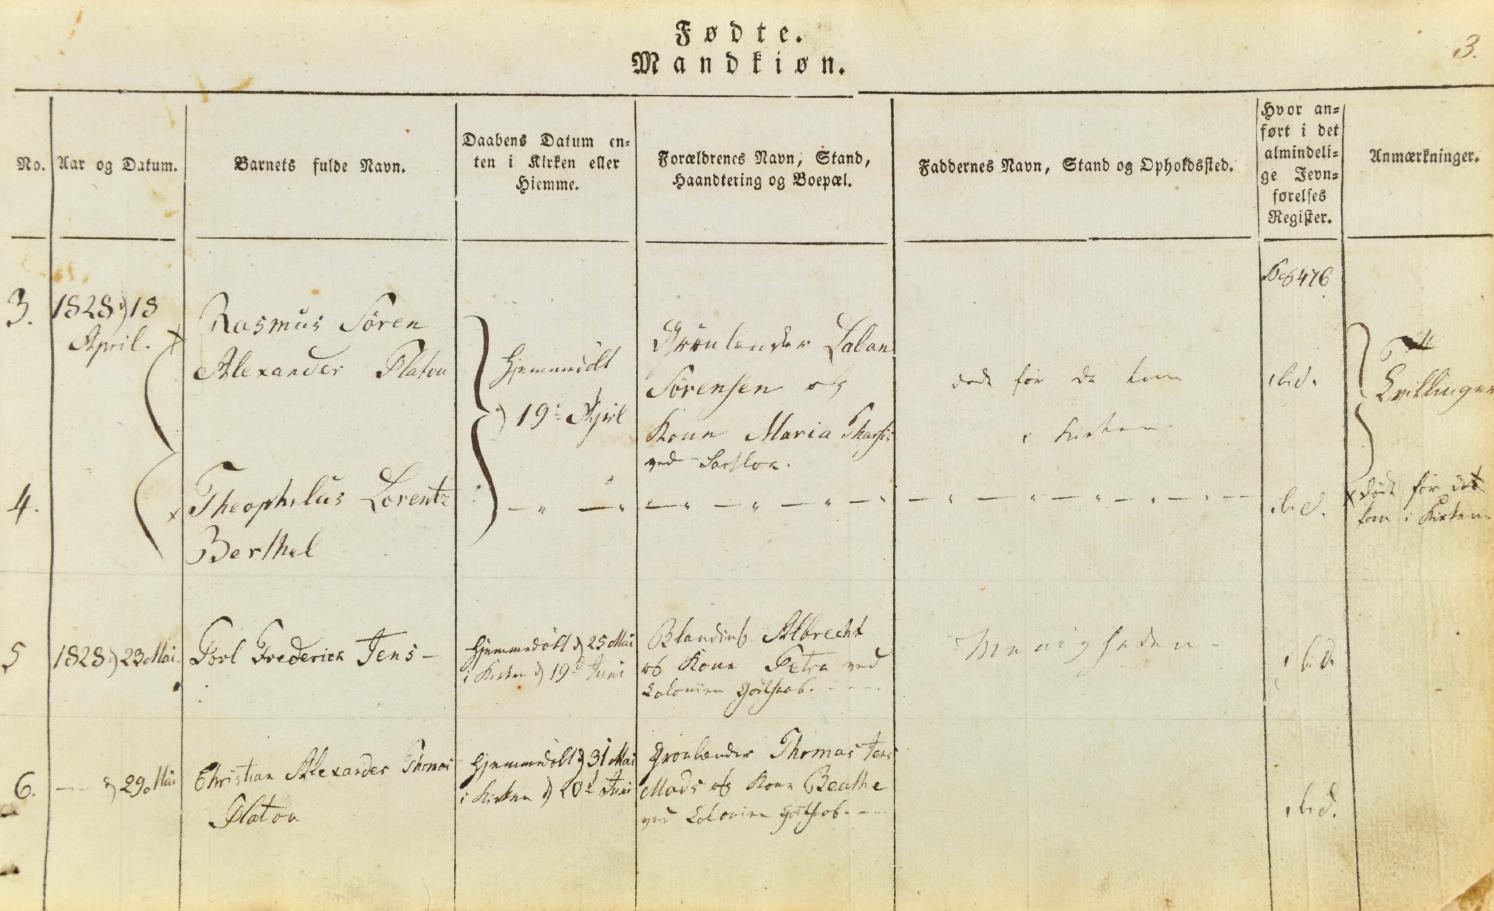 Fødte.
Mandkiøn.
3.
No.
Aar og Datum.
Barnets fulde Navn.
Daabens Datum en=
ten i Kirken eller
Hiemme.
Forældrenes Navn, Stand,
Haandtering og Boepæl.
Faddernes Navn, Stand og Opholdssted.
Hvor an=
ført i det
almindeli=
ge Jevn=
førelses
Register.
Anmærkninger.
3.
1828 d 18
April.
Rasmus Sören
Alexander Platou
Hjemmedöbt
d 19 April
Grönlænder Laban
Sörensen og
Kone Maria
ved
død för de kom
i Kirken
476
ibid.
Tvillinger
4.
Theophilus Lorentz
Berthel
ibid.
x døde för det
kom i Kirken
5
1828 d 23 Mai
Povl Frederick Jens –
Hjemmedöbt d 25 Mai
i Kirken d 19 Juni
Blanding Albrecht
og Kone Petra ved
Colonien Godthaab.
Menigheden –
ibid
6.
d 29 Mai
Christian Alexander Thomas
Platou
Hjemmedöbt d 31 Mai
i Kirken d 20 Juni
Grönlænder Thomas Jens
Mads og Kone Beathe
ved Colonien Godthaab.
ibid.